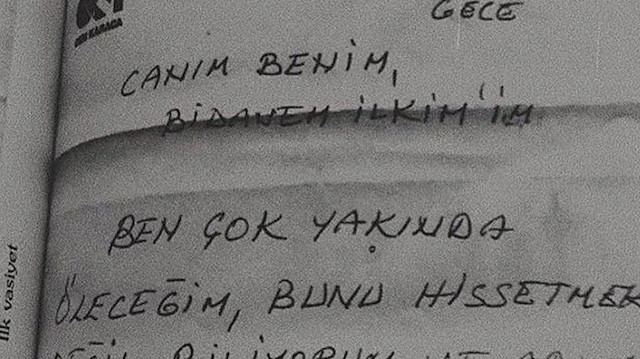 GECE
CANIM BENİM,
BİDANEM İLKİM'İM
BEN ÇOK YAKINDA
ÖLECEĞİM, BUNU HİSSETMEK
DEĞİL BİLİYORUM
İlk vasiyet